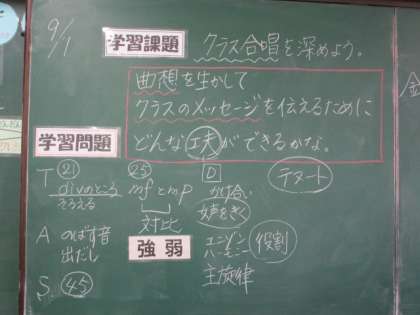 9/1
学習課題 クラス合唱を深めよう。
曲想を生かして
クラスのメッセージを伝えるために
学習問題 どんな工夫ができるかな。
T ㉑ divのところ
そろえる
㉕ mfとmp
対比
強弱
D かけ合い
女声をきく
テヌート
A のばす音
出だし
ユニゾン
ハーモニー
役割
主旋律
S. ㊺
金